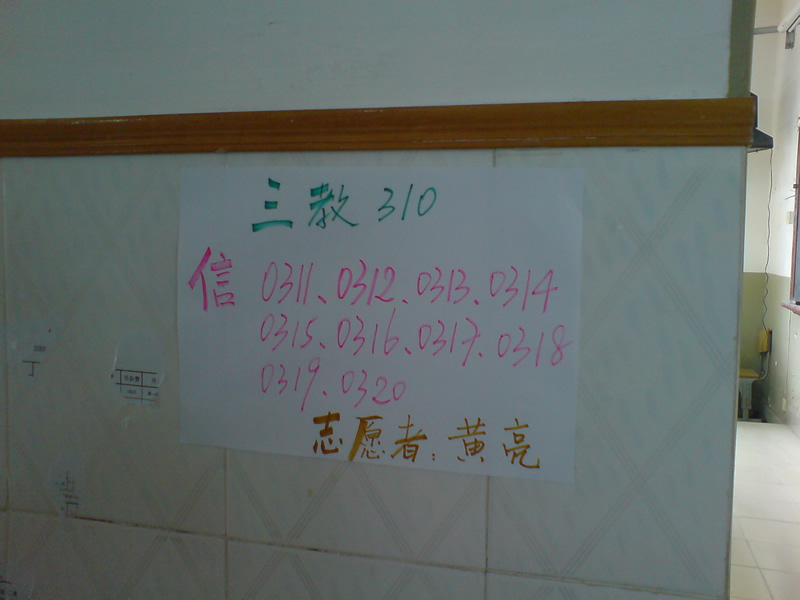 三教 310
信 0311、0312、0313、0314
0315、0316、0317、0318
0319、0320
志愿者：黄亮